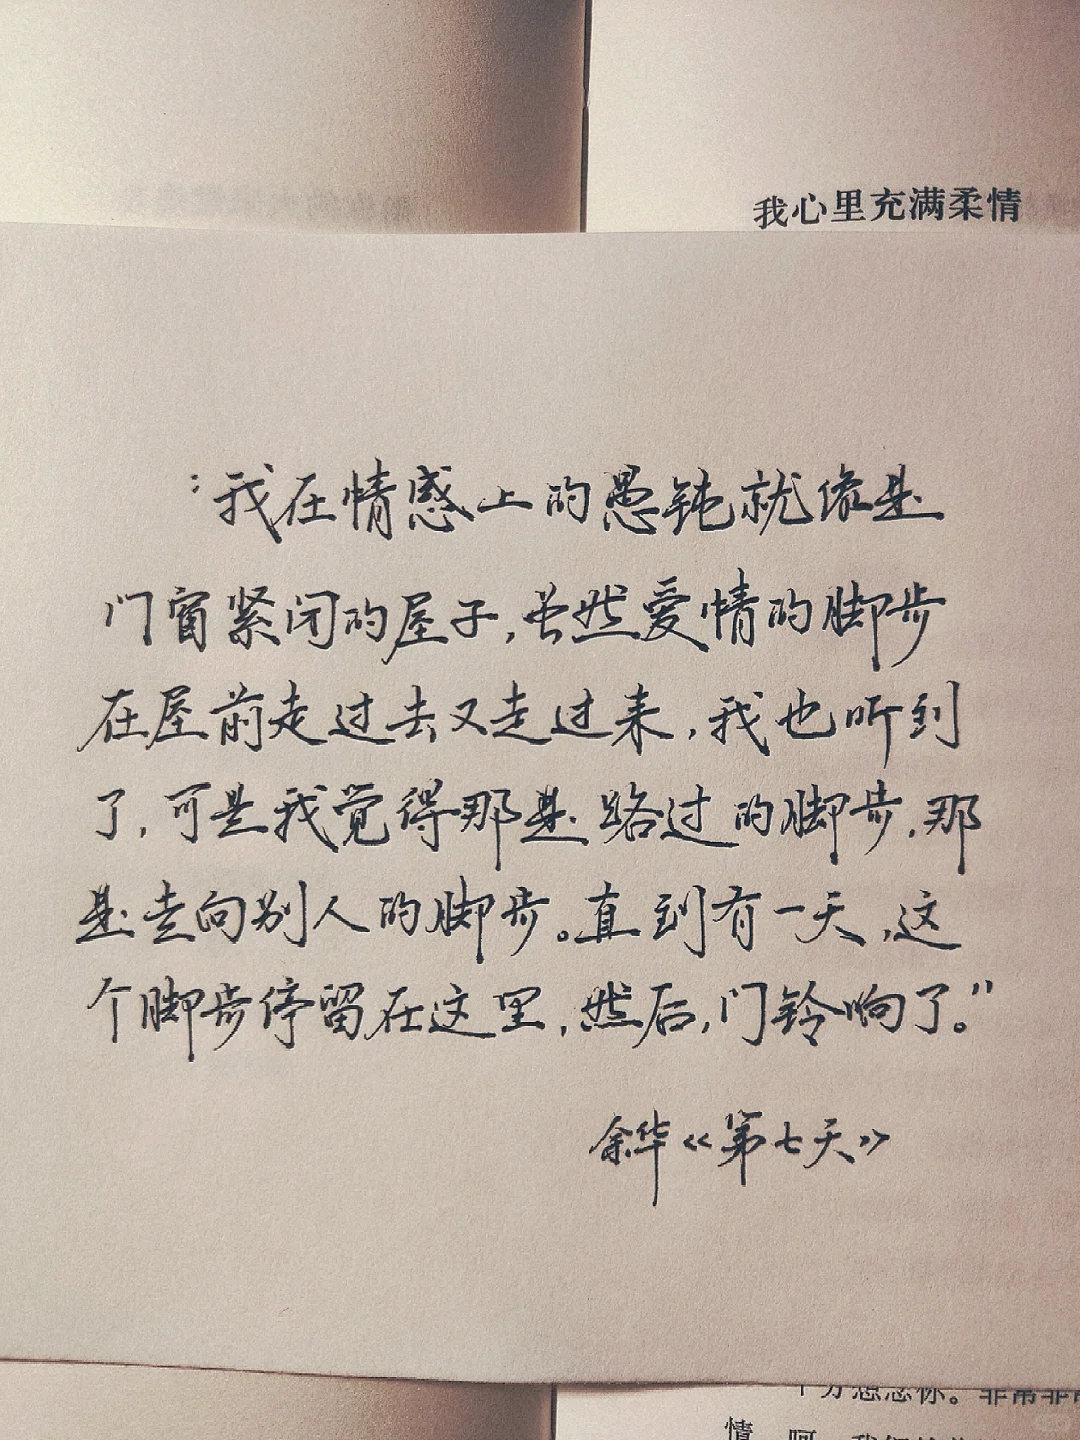 我心里充满柔情
“我在情感上的愚钝就像是
门窗紧闭的屋子，虽然爱情的脚步
在屋前走过去又走过来，我也听到
了，可是我觉得那是路过的脚步，那
是走向别人的脚步。直到有一天，这
个脚步停留在这里，然后，门铃响了。”
余华《第七天》
十分想念你。非常非常
情